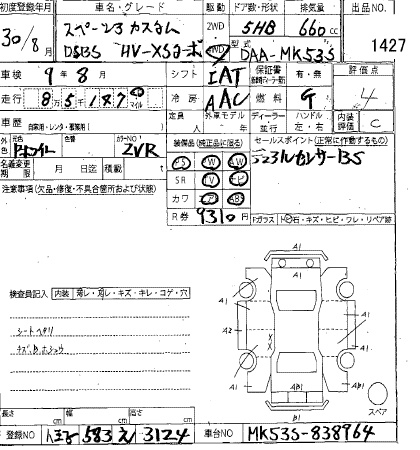 初度登録年月 車名・グレード 駆動 ドア数・形状 排気量 出品NO
30/8月 スペーシア カスタム 2WD 5HB 660cc 1427
DSBS HV-XSターボ 4WD 型式 DAA-MK53S
車検 9年8月 シフト IAT 保証書 有・無 評価点
走行 8万5千187 マイル 冷房 AAC 燃料 G 4
車歴 自家用・レンタ・事業用( ) 定員 人 外車モデル 年 ディーラー 並行 ハンドル 左・右 内装評価 C
外色 元色 色番 カラーNO ZVR 装備品(純正品に限る) セールスポイント(正常に作動するもの)
名義変更期限 月 日迄 積載 t PS PW AW デュアルセンサーBS
注意事項(欠品・修復・不具合箇所および状態) SR TV ナビ
カワ エア AB
R券 9310円 Fガラス トビ石・キズ・ヒビ・ワレ・リペア跡
検査員記入 内装 汚レ・スレ・キズ・キレ・コゲ・穴
A1
A1 A1
A1 A1
A2 A1
シートヘタリ
X
X
A1 A1
A1 AB1 A1
B1
スペア
長さ cm 幅 cm 高さ cm
登録NO 583 え 3124 車台NO MK53S-838964